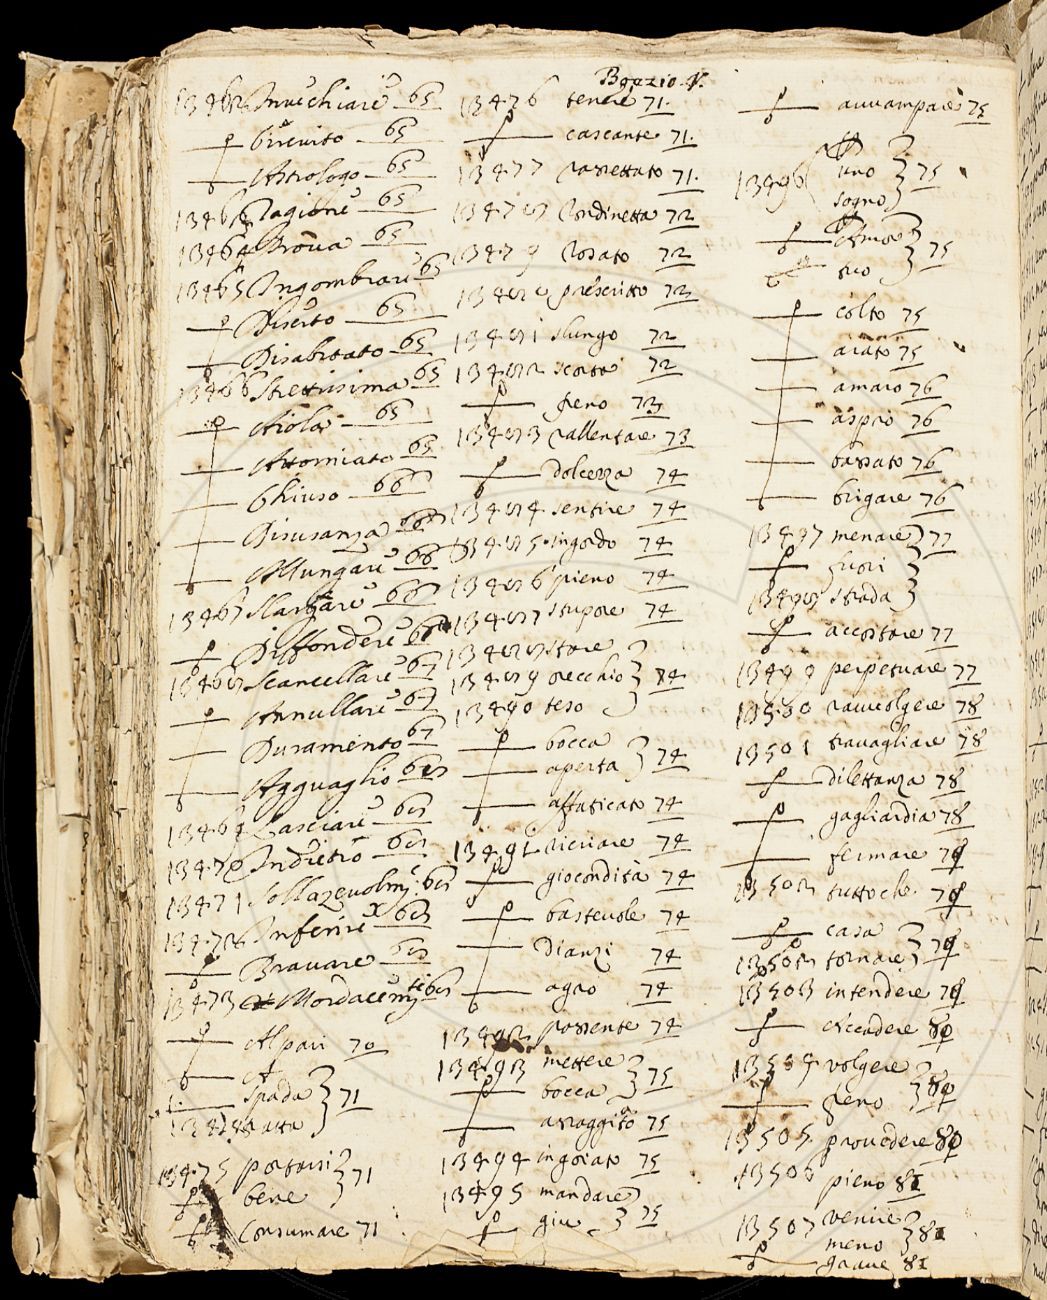 Boezio. V.
13462 Invechiare 65
Circuito 65
Astrologo 65
13463 Ragione 65
13464 Prova 65
13465 Ingombrare 65
Diserto 65
Disabitato 65
13466 Strettissima 65
Aiola 65
Attorniato 65
Chiuso 66
Disusanza 66
Allungare 66
13467 Slargare 66
Diffondere
13468 Scancellare 67
Annullare 67
Duramento 67
Agguaglio 68
13469 Lasciare 68
13470 Indietro 68
13471 Sollazevolm: 68
13472 Inferire 68
Bravare 68
13473 Mordacem.ti 68
Al pari 70
A
Spada } 71
tratta
13475 portarsi } 71
bene
Consumare 71
13476 tenere 71.
cascante 71.
13477 rassettato 71.
13478 Rondinetta 72
13479 Rosato 72
13480 prescritto 72
13481 slungo 72
13482 scorta 72
freno 73
13483 rallentare 73
dolcezza 74
13484 sentire 74
13485 ingordo 74
13486 pieno 74
13487 stupore 74
13488 stare
13489 orecchio } 74
13490 teso
bocca
aperta } 74
affaticato 74
13491 ricriare 74
giocondità 74
bastevole 74
dianzi 74
agro 74
13492 possente 74
13493 mettere
bocca } 75
assaggito 75
13494 ingoiato 75
13495 mandare
giu } 75
avvampare 75
13496 uno } 75
sogno
Amor
suo } 75
colto 75
aiato 75
amaro 76
aspro 76
bassato 76
brigare 76
13497 menare } 77
fuori
13498 strada
accostare 77
13499 perpetuare 77
13500 ravvolgere 78
13501 travagliare 78
dilettanza 78
gagliardia 78
fermare 79
13502 tuttoche 79
casa
13502 tornare } 79
13503 intendere 79
eccedere 80
13504 volgere
freno } 80
13505 provedere 80
13506 pieno 81
13507 venire
meno } 81
grave 81